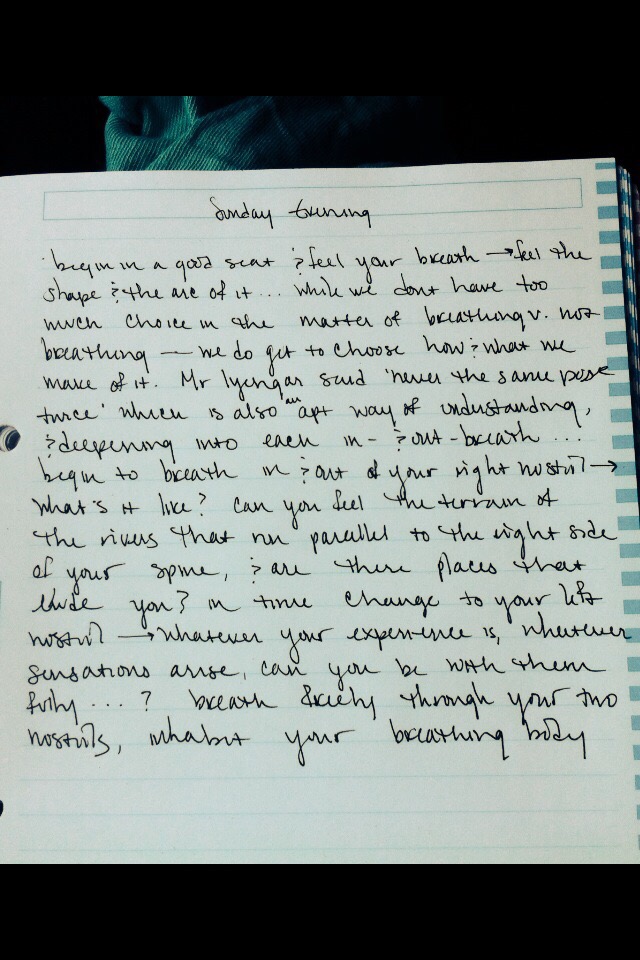 Sunday Evening
begin in a good seat & feel your breath → feel the
shape & the arc of it ... while we dont have too
much choice in the matter of breathing v. not
breathing — we do get to choose how & what we
make of it. Mr Iyengar said 'never the same pose
twice' which is also an apt way of understanding,
& deepening into each in- & out-breath ...
begin to breath in & out of your right nostril →
what's it like? can you feel the terrain of
the rivers that run parallel to the right side
of your spine, & are there places that
elude you? in time change to your left
nostril → whatever your experience is, whatever
sensations arise, can you be with them
fully ... ? breath freely through your two
nostrils, inhabit your breathing body